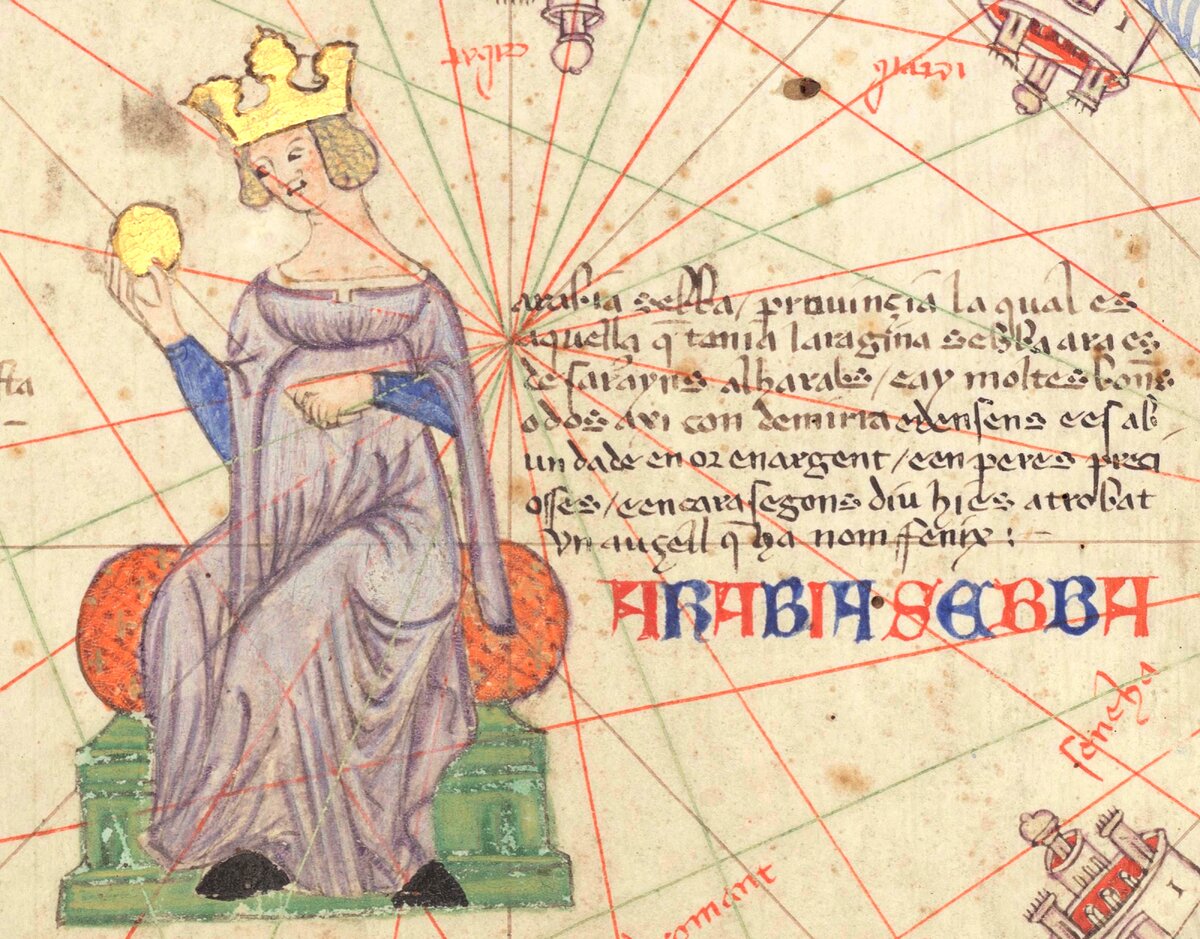 arabia sebba / provinçia la qual es
aquella q̄ tenia laragina sebba ara es
de sarayns alharabs / eay moltes bons
odos axi con de mirra e densens e es ab
undade en or en argent / e en peres preci
osses / e encara segons diu hi es atrobat
vn auçell q̄ ha nom ffenix :
ARABIA SEBBA